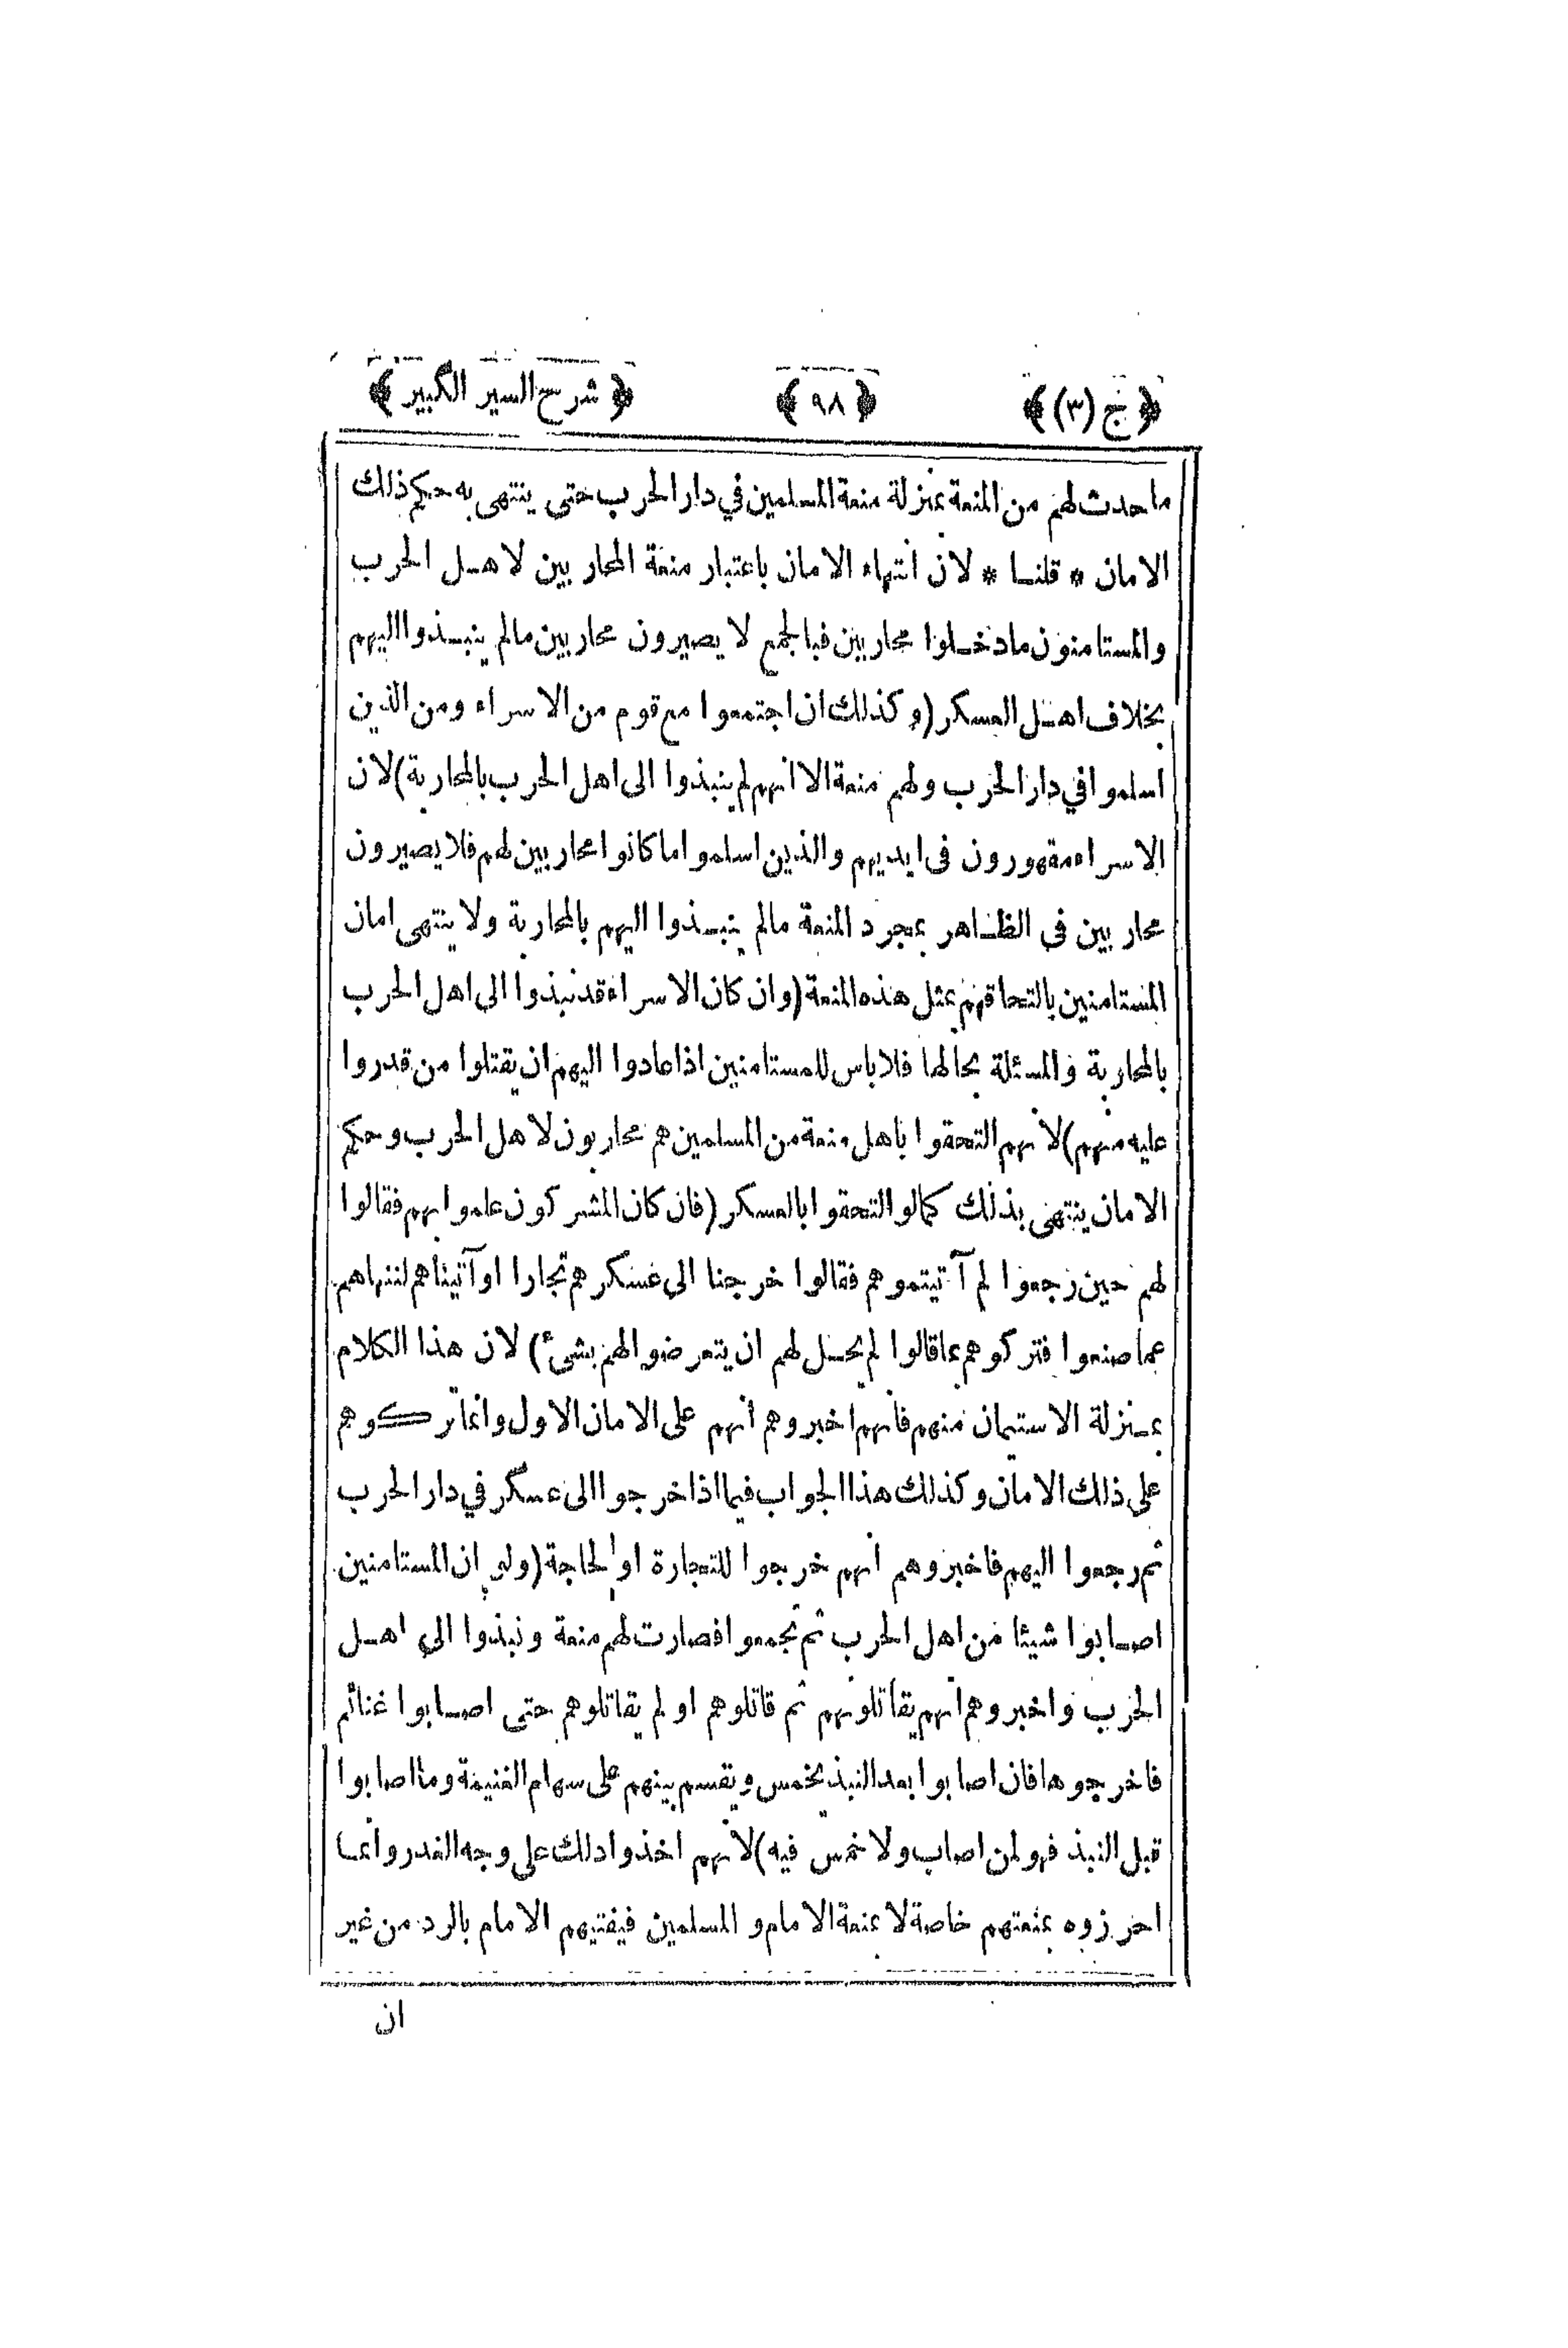 ﴿ ج (٣) ﴾ ﴿ ٩٨ ﴾ ﴿ شرح السير الكبير ﴾
ما حدث لهم من المنعة بمنزلة منعة المسلمين في دار الحرب حتى ينتهى به حكم ذلك
الامان * قلنا * لان انتهاء الامان باعتبار منعة المحاربين لاهل الحرب
والمستامنون ما دخلوا محاربين فبالجمع لا يصيرون محاربين مالم ينبذوا اليهم
بخلاف اهل العسكر (وكذلك ان اجتمعوا مع قوم من الاسراء ومن الذين
اسلموا في دار الحرب ولهم منعة الا انهم لم ينبذوا الى اهل الحرب بالمحاربة) لان
الاسراء مقهورون فى ايديهم والذين اسلموا ما كانوا محاربين لهم فلا يصيرون
محاربين فى الظاهر بمجرد المنعة مالم ينبذوا اليهم بالمحاربة ولا ينتهى امان
المستامنين بالتحاقهم بمثل هذه المنعة (وان كان الاسراء قد نبذوا الى اهل الحرب
بالمحاربة والمسئلة بحالها فلا باس للمستامنين اذا عادوا اليهم ان يقتلوا من قدروا
عليه منهم) لانهم التحقوا باهل منعة من المسلمين هم محاربون لاهل الحرب وحكم
الامان ينتهى بذلك كما لو التحقوا بالعسكر (فان كان المشركون علموا بهم فقالوا
لهم حين رجعوا لم آتيتموهم فقالوا خرجنا الى عسكرهم تجارا او آتيناهم لننهاهم
عما صنعوا فتركوهم بما قالوا لم يحل لهم ان يتعرضوا لهم بشىء) لان هذا الكلام
بمنزلة الاستيمان منهم فانهم اخبروهم انهم على الامان الاول وانما تركوهم
على ذلك الامان وكذلك هذا الجواب فيما اذا خرجوا الى عسكر في دار الحرب
ثم رجعوا اليهم فاخبروهم انهم خرجوا للتجارة او لحاجة (ولو ان المستامنين
اصابوا شيئا من اهل الحرب ثم تجمعوا فصارت لهم منعة ونبذوا الى اهل
الحرب واخبروهم انهم يقاتلونهم ثم قاتلوهم او لم يقاتلوهم حتى اصابوا غنائم
فاخرجوها فان اصابوا بعد النبذ يخمس ويقسم بينهم على سهام الغنيمة وما اصابوا
قبل النبذ فهو لمن اصاب ولا خمس فيه) لانهم اخذوا ذلك على وجه الغدر وانما
احرزوه بمنعتهم خاصة لا بمنعة الامام و المسلمين فيفتيهم الامام بالرد من غير
ان